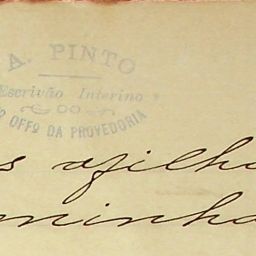 A. PINTO
Escrivão Interino
Offº DA PROVEDORIA
s afilha
minha